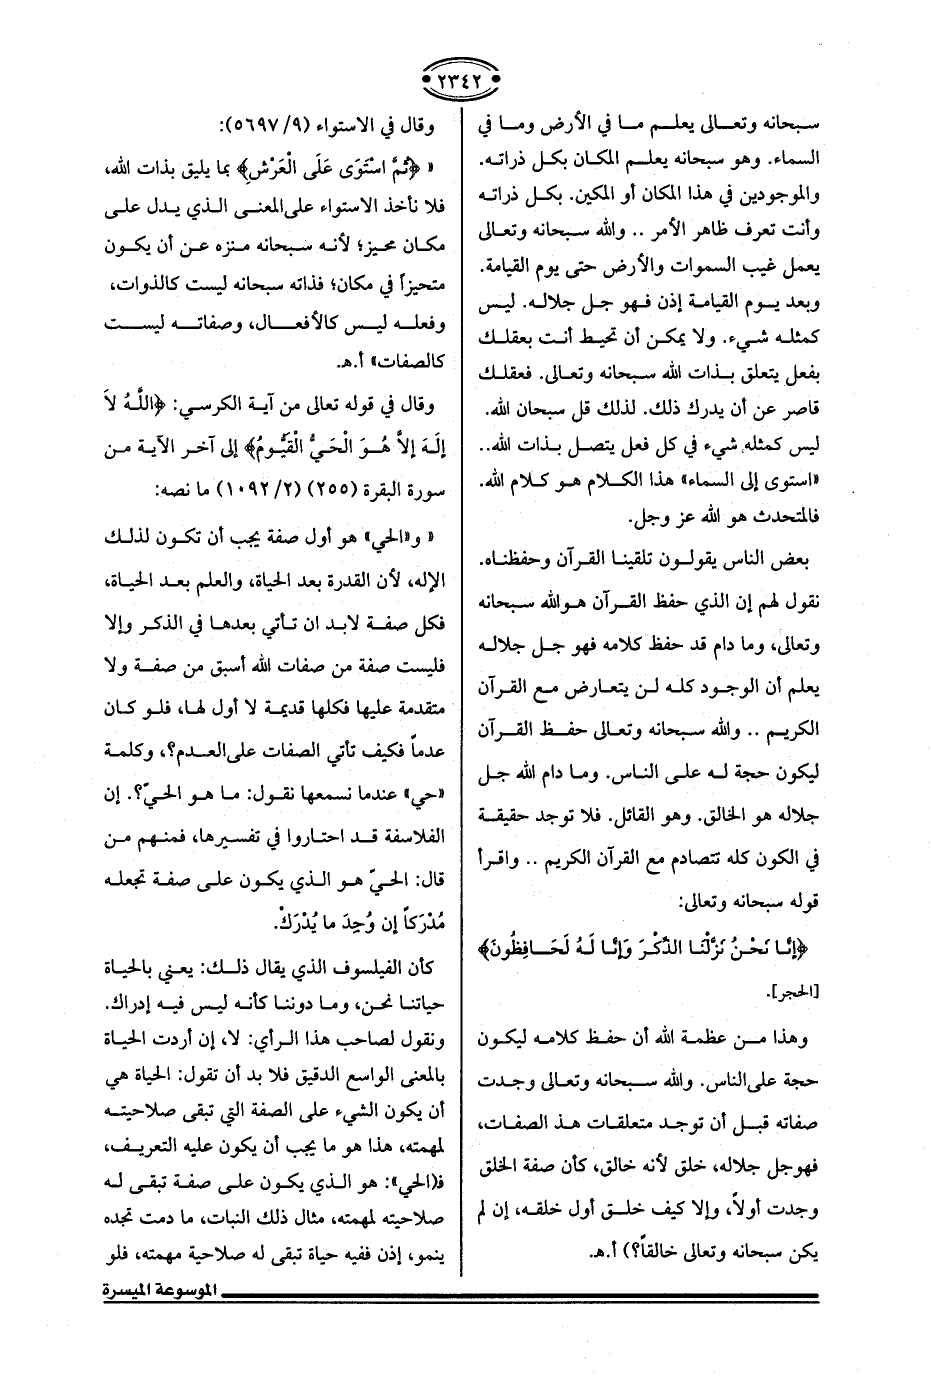 ٢٣٤٢
سبحانه وتعالى يعلم ما في الأرض وما في
السماء. وهو سبحانه يعلم المكان بكل ذراته.
والموجودين في هذا المكان أو المكين. بكل ذراته
وأنت تعرف ظاهر الأمر .. والله سبحانه وتعالى
يعمل غيب السموات والأرض حتى يوم القيامة.
وبعد يوم القيامة إذن فهو جل جلاله. ليس
كمثله شيء. ولا يمكن أن تحيط أنت بعقلك
بفعل يتعلق بذات الله سبحانه وتعالى. فعقلك
قاصر عن أن يدرك ذلك. لذلك قل سبحان الله.
ليس كمثله شيء في كل فعل يتصل بذات الله..
«استوى إلى السماء» هذا الكلام هو كلام الله.
فالمتحدث هو الله عز وجل.
بعض الناس يقولون تلقينا القرآن وحفظناه.
نقول لهم إن الذي حفظ القرآن هو الله سبحانه
وتعالى، وما دام قد حفظ كلامه فهو جل جلاله
يعلم أن الوجود كله لن يتعارض مع القرآن
الكريم .. والله سبحانه وتعالى حفظ القرآن
ليكون حجة له على الناس. وما دام الله جل
جلاله هو الخالق. وهو القائل. فلا توجد حقيقة
في الكون كله تتصادم مع القرآن الكريم .. واقرأ
قوله سبحانه وتعالى:
﴿إِنَّا نَحْنُ نَزَّلْنَا الذِّكْرَ وَإِنَّا لَهُ لَحَافِظُونَ﴾
[الحجر].
وهذا من عظمة الله أن حفظ كلامه ليكون
حجة على الناس. والله سبحانه وتعالى وجدت
صفاته قبل أن توجد متعلقات هذ الصفات،
فهوجل جلاله، خلق لأنه خالق، كأن صفة الخلق
وجدت أولاً، وإلا كيف خلق أول خلقه، إن لم
يكن سبحانه وتعالى خالقاً؟) أ.هـ.
وقال في الاستواء (٩/ ٥٦٩٧):
« ﴿ثُمَّ اسْتَوَى عَلَى الْعَرْشِ﴾ بما يليق بذات الله،
فلا نأخذ الاستواء على المعنى الذي يدل على
مكان محيز؛ لأنه سبحانه منزه عن أن يكون
متحيزاً في مكان؛ فذاته سبحانه ليست كالذوات،
وفعله ليس كالأفعال، وصفاته ليست
كالصفات» أ.هـ.
وقال في قوله تعالى من آية الكرسي: ﴿اللَّهُ لاَ
إِلَهَ إِلاَّ هُوَ الْحَيُّ الْقَيُّومُ﴾ إلى آخر الآية من
سورة البقرة (٢٥٥) (٢/ ١٠٩٢) ما نصه:
« و«الحي» هو أول صفة يجب أن تكون لذلك
الإله، لأن القدرة بعد الحياة، والعلم بعد الحياة،
فكل صفة لابد ان تأتي بعدها في الذكر وإلا
فليست صفة من صفات الله أسبق من صفة ولا
متقدمة عليها فكلها قديمة لا أول لها، فلو كان
عدماً فكيف تأتي الصفات على العدم؟، وكلمة
«حي» عندما نسمعها نقول: ما هو الحيّ؟. إن
الفلاسفة قد احتاروا في تفسيرها، فمنهم من
قال: الحيّ هو الذي يكون على صفة تجعله
مُدْرَكاً إن وُجِدَ ما يُدْرَكْ.
كأن الفيلسوف الذي يقال ذلك: يعني بالحياة
حياتنا نحن، وما دوننا كأنه ليس فيه إدراك.
ونقول لصاحب هذا الرأي: لا، إن أردت الحياة
بالمعنى الواسع الدقيق فلا بد أن تقول: الحياة هي
أن يكون الشيء على الصفة التي تبقى صلاحيته
لمهمته، هذا هو ما يجب أن يكون عليه التعريف،
فـ(الحي»: هو الذي يكون على صفة تبقى له
صلاحيته لمهمته، مثال ذلك النبات، ما دمت تجده
ينمو، إذن ففيه حياة تبقى له صلاحية مهمته، فلو
الموسوعة الميسرة